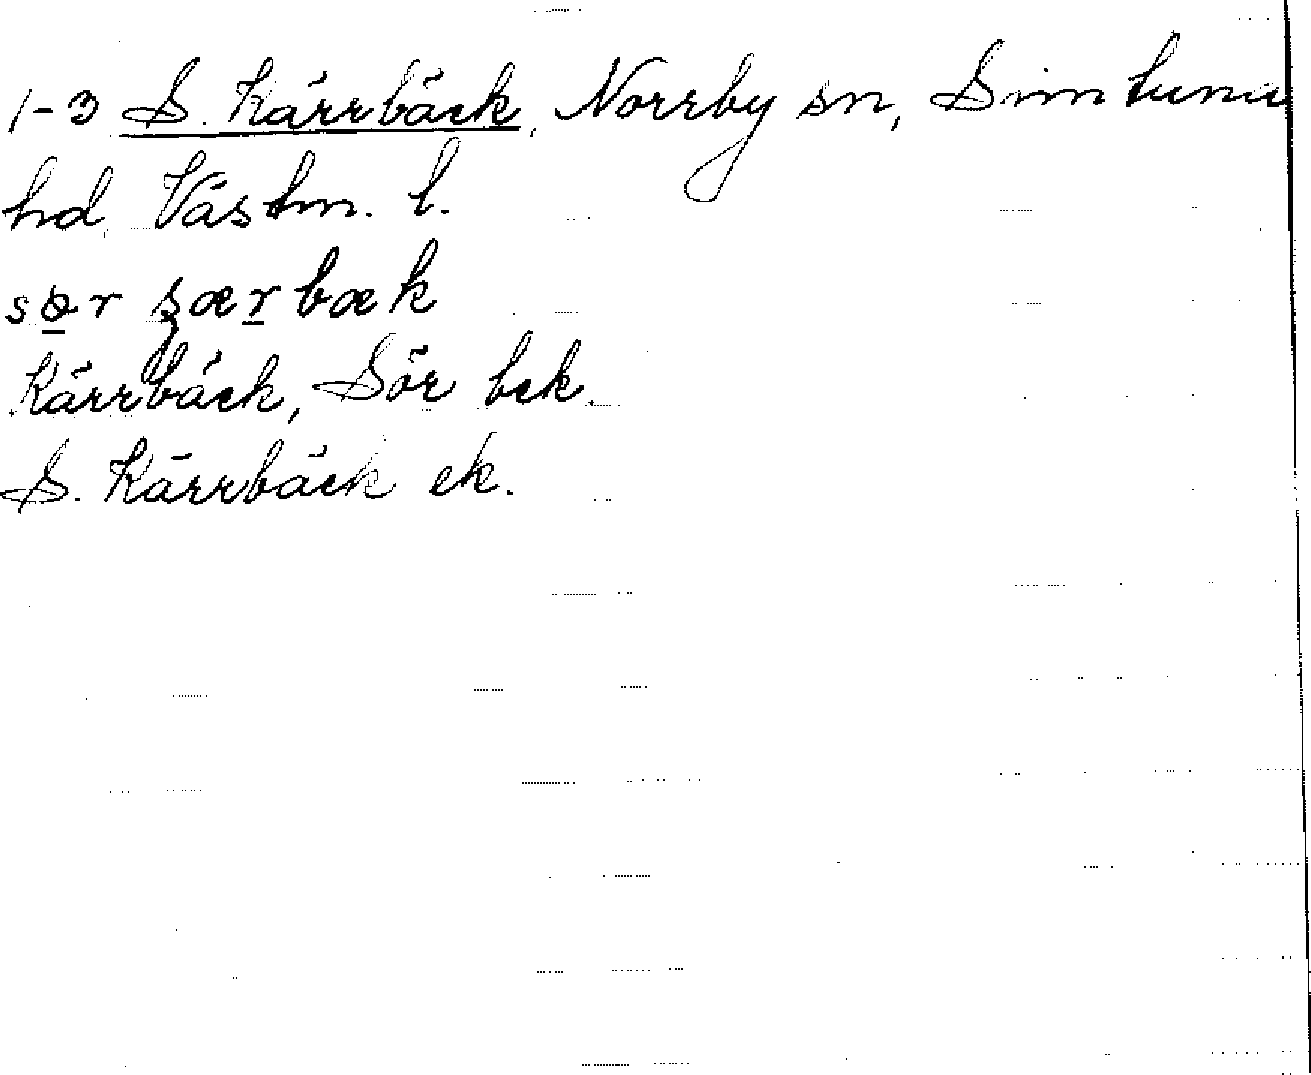 1-3 S. Kärrbäck, Norrby sn, Simtuna
hd, Västm. l.
sər ʂærbæk
Kärrbäck, Sör bek.
S. Kärrbäck ek.